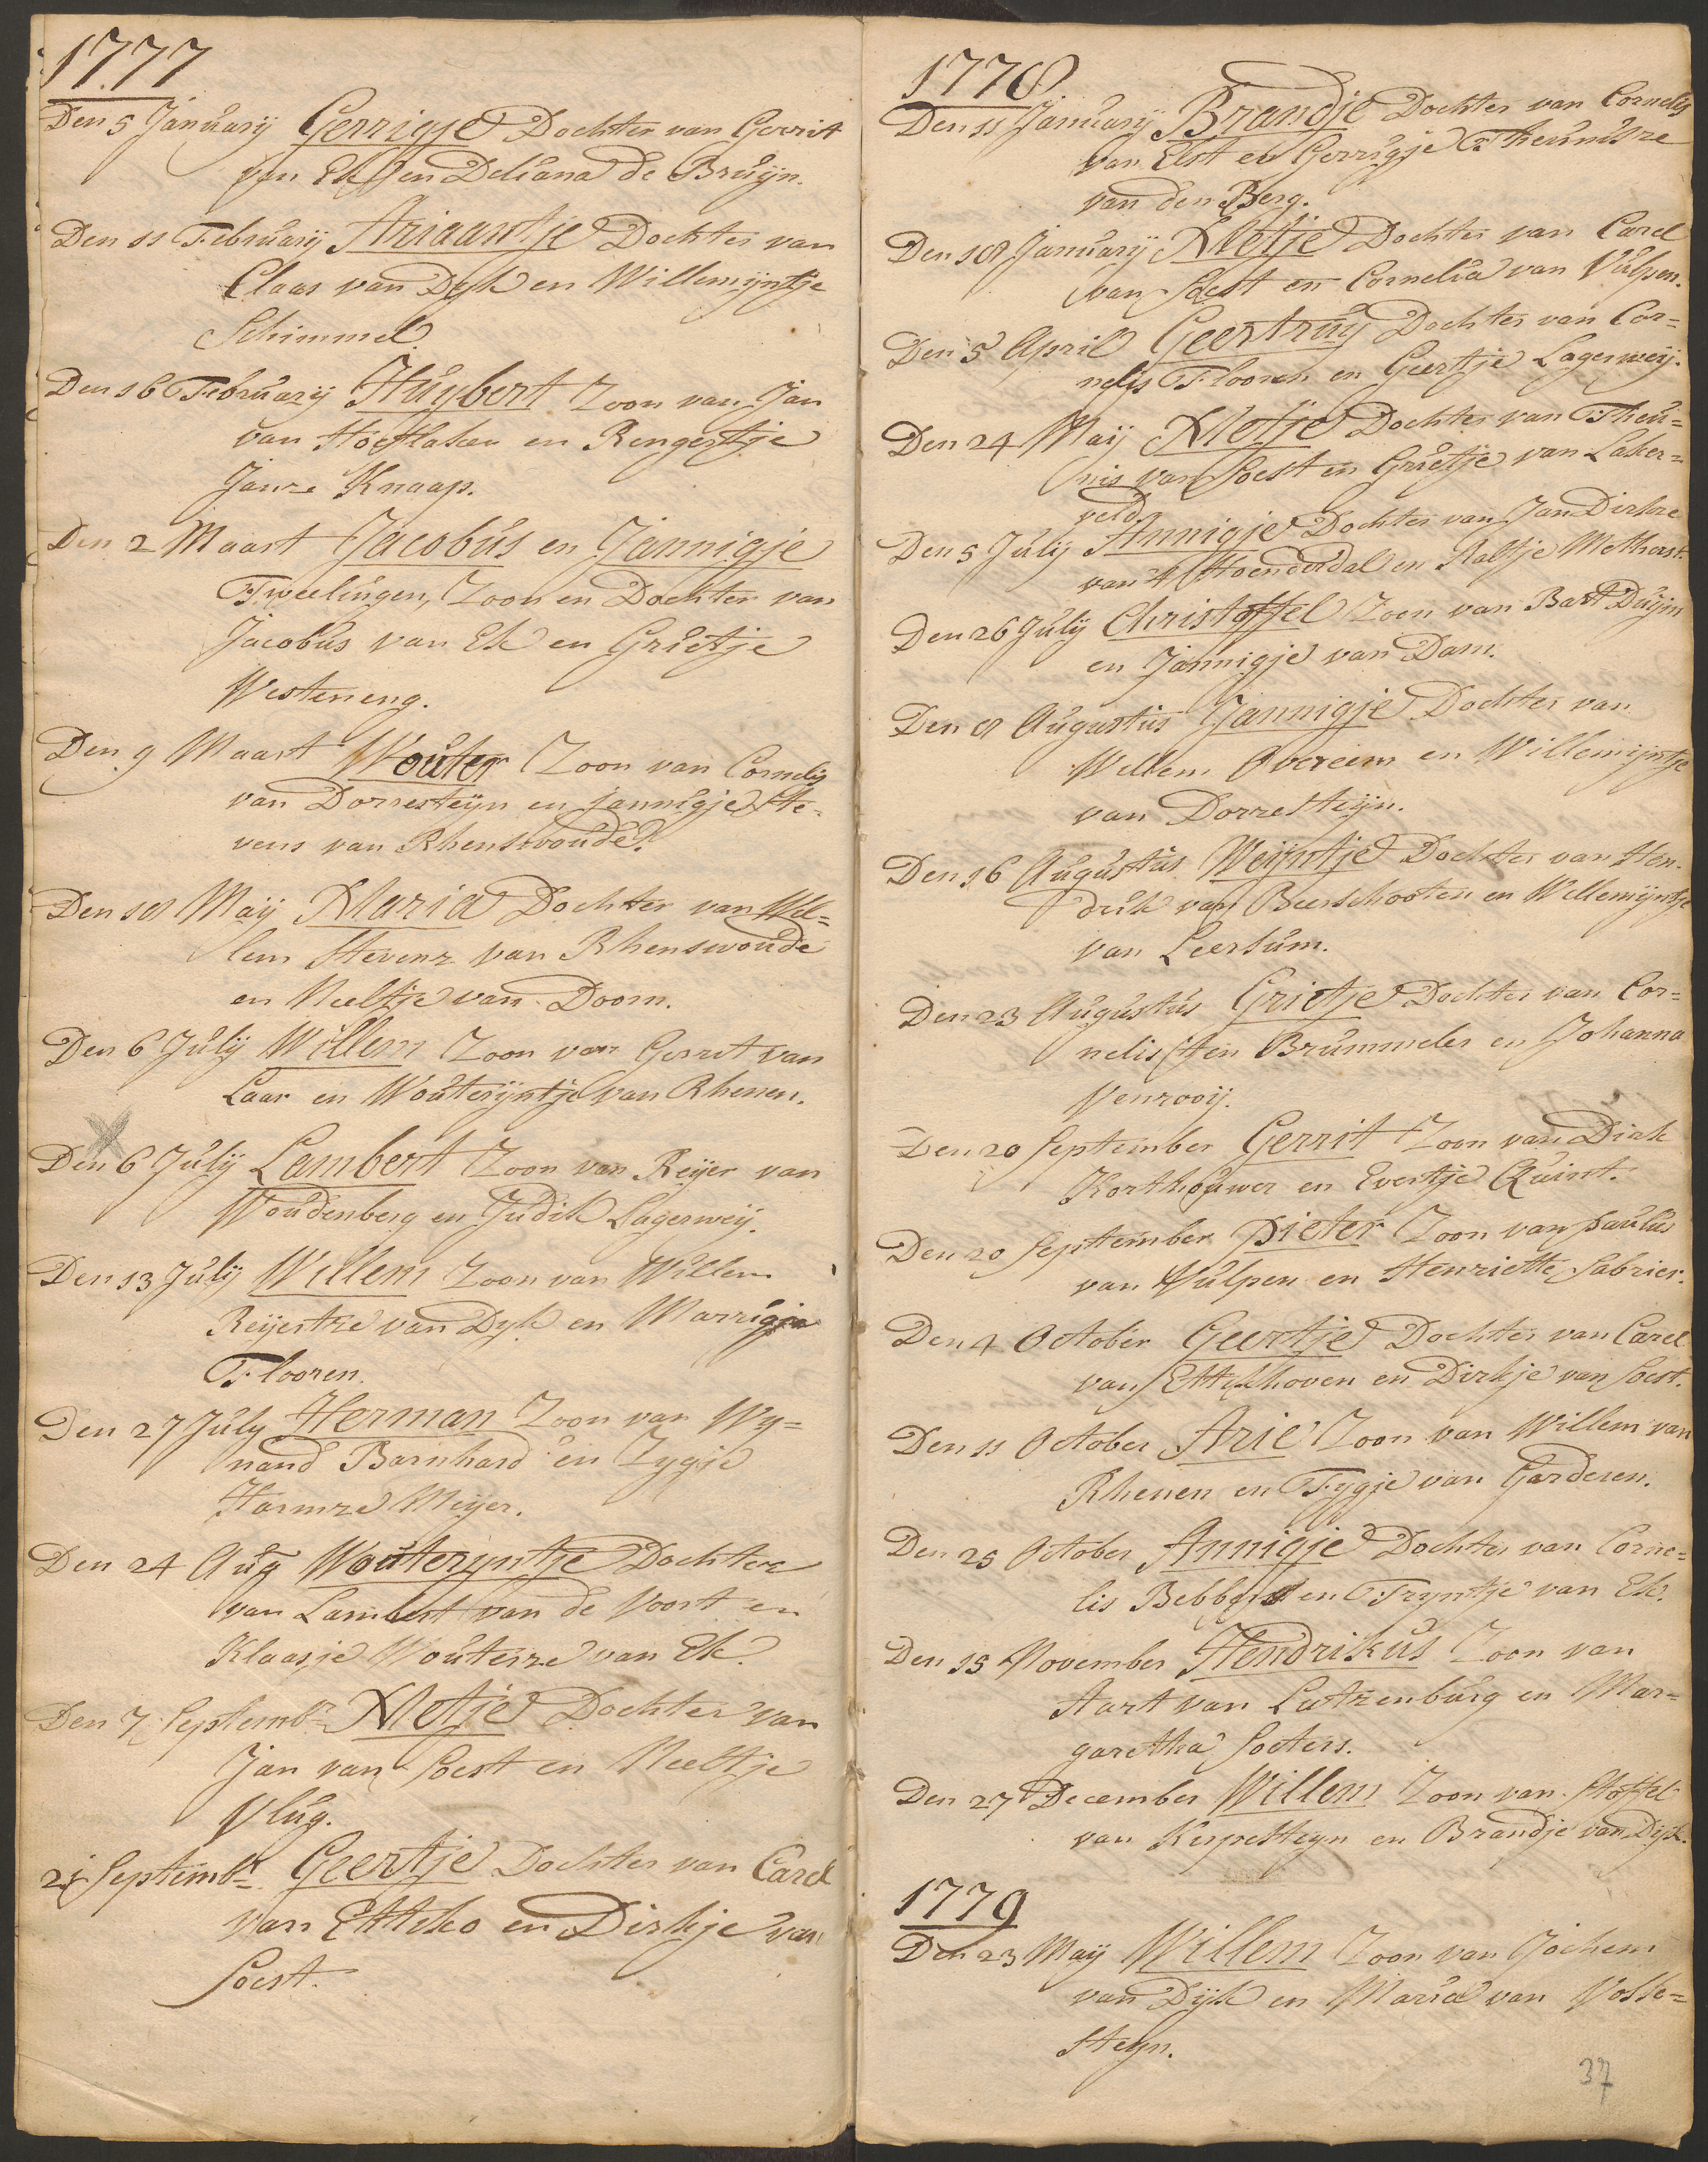 1777
Den 5 Januarij Gerrigje Dochter van Gerrit
van Ek en Deliana de Bruijn.
Den 11 February Ariaantje Dochter van
Claas van Dyk en Willemijntje
Schimmel.
Den 16 Februarij Huybert Zoon van Jan
van Hoeflaken en Rengertje
Janze Knaap.
Den 2 Maart Jacobus en Jannigje
Tweelingen, Zoon en Dochter van
Jacobus van Ek en Grietje
Westeneng.
Den 9 Maart Wouter Zoon van Cornelis
van Dorresteijn en Jannigje Ste-
vens van Rhenswoude.
Den 18 Maij Maria Dochter van Wil=
lem Stevenz van Rhenswoude
en Neeltje van Doorn.
Den 6 Julij Willem Zoon van Gerrit van
Laar en Wouterijntje van Rhenen.
Den 6 Julij Lambert Zoon van Reijer van
Woudenberg en Judik Lagerweij.
Den 13 Julij Willem Zoon van Willem
Reijertze van Dyk en Marrigje
Flooren.
Den 27 July Herman Zoon van Wy=
nand Barnhard en Zygje
Harmze Meijer.
Den 24 Aug Wouteryntje Dochter
van Lambert van de Voort en
Klaasje Wouterze van Ek.
Den 7 Septembr Metje Dochter van
Jan van Soest en Neeltje
Vlug.
21 Septembr. Geertje Dochter van Carel
van Etteko en Dirkje van
Soest.
1778.
Den 11 Januarij Brandje Dochter van Cornelis
van Elst en Gerrigje Theunisze
van den Berg.
Den 18 Januarij Metje Dochter van Carel
van Soest en Cornelia van Vulpen.
Den 5 April Geertruy Dochter van Cor=
nelis Flooren en Geertje Lagerweij.
Den 24 Maij Metje Dochter van Theu=
nis van Soest en Grietje van Laker=
veld.
Den 5 Julij Annigje Dochter van Jan Dirkze
van 't Hoenderdal en Aaltje Methorst.
Den 26 Julij Christoffel Zoon van Bart Duijn
en Jannigje van Dam.
Den 8 Augustus Jannigje Dochter van
Willem Overeem en Willemijntje
van Dorresteijn.
Den 16 Augustus Weijntje Dochter van Hen-
drik van Beerschooten en Willemijntje
van Leersum.
Den 23 Augustus Grietje Dochter van Cor=
nelis ten Brummeler en Johanna
Venrooij.
Den 20 September Gerrit Zoon van Dirk
Korthouwer en Evertje Quint.
Den 20 September Pieter Zoon van Paulus
van Vulpen en Henriette Sabrier.
Den 4 October Geertje Dochter van Carel
van Ettekhoven en Dirkje van Soest.
Den 11 October Arie Zoon van Willem van
Rhenen en Fygje van Garderen.
Den 25 October Annigje Dochter van Corne=
lis Bebber en Tryntje van Ek.
Den 15 November Hendrikus Zoon van
Aart van Lutzenburg en Mar=
garetha Soeters.
Den 27 December Willem Zoon van Stoffel
van Kerpesteyn en Brandje van Dijk.
1779
Den 23 Maij Willem Zoon van Jochem
van Dijk en Maria van Volle=
steyn.
37